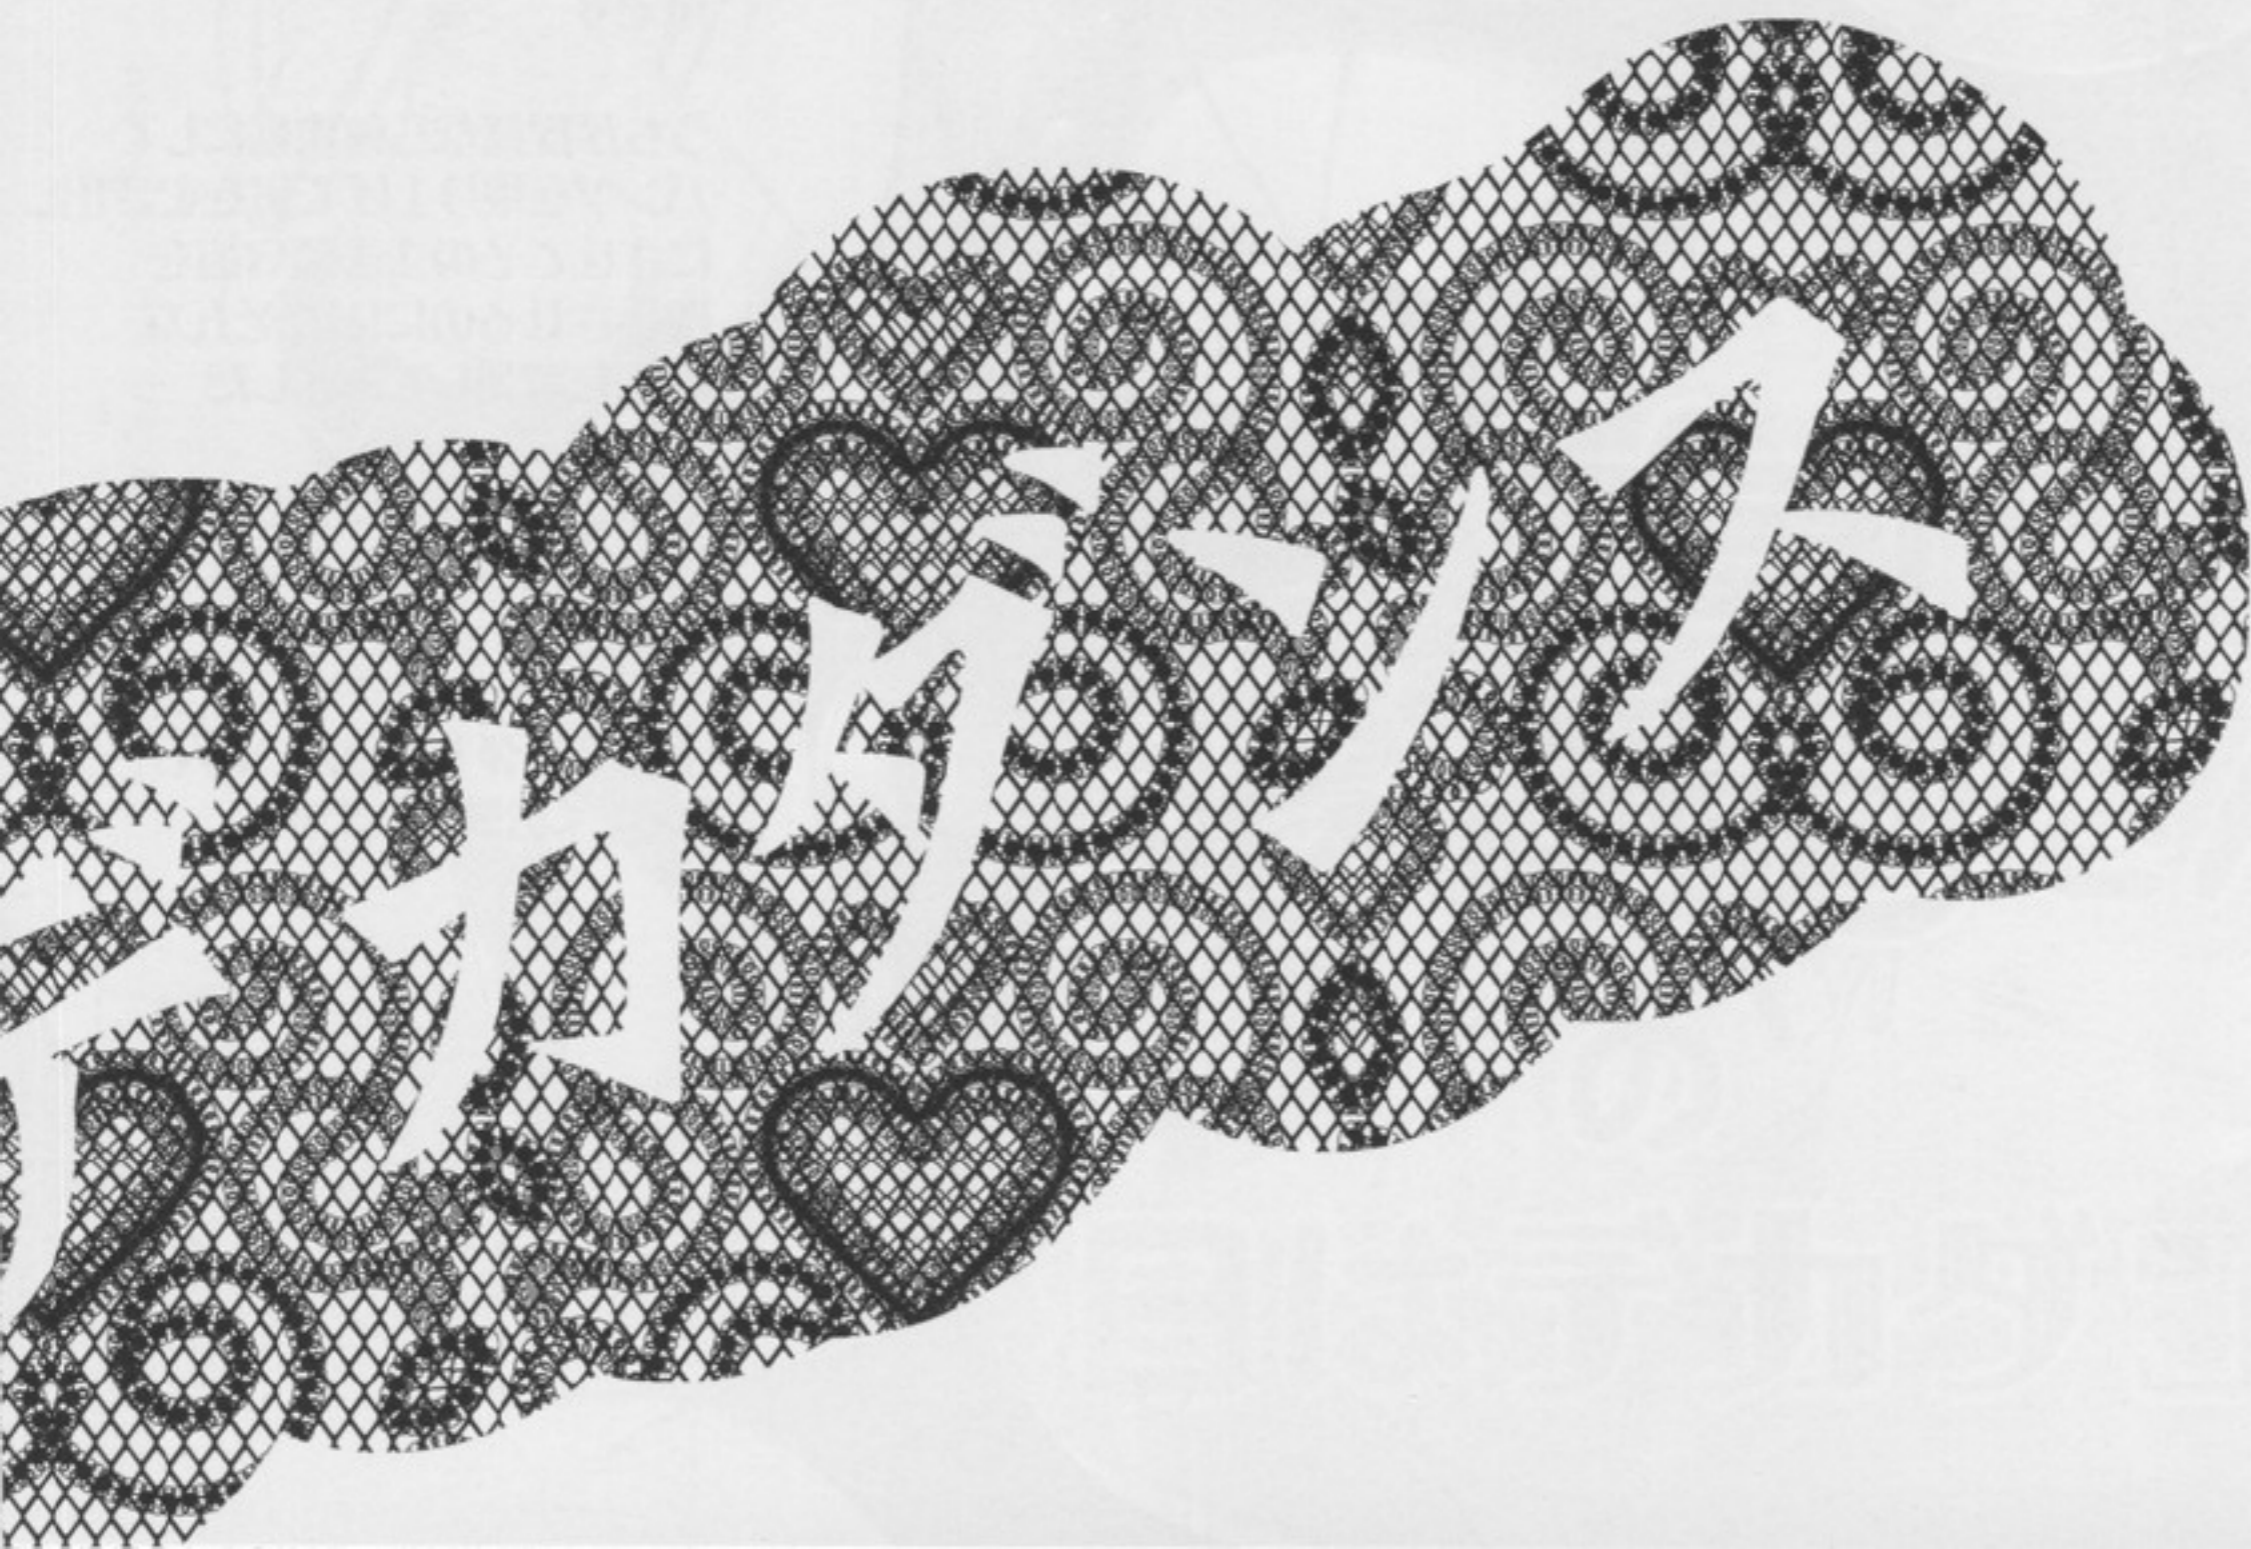 デカダンス